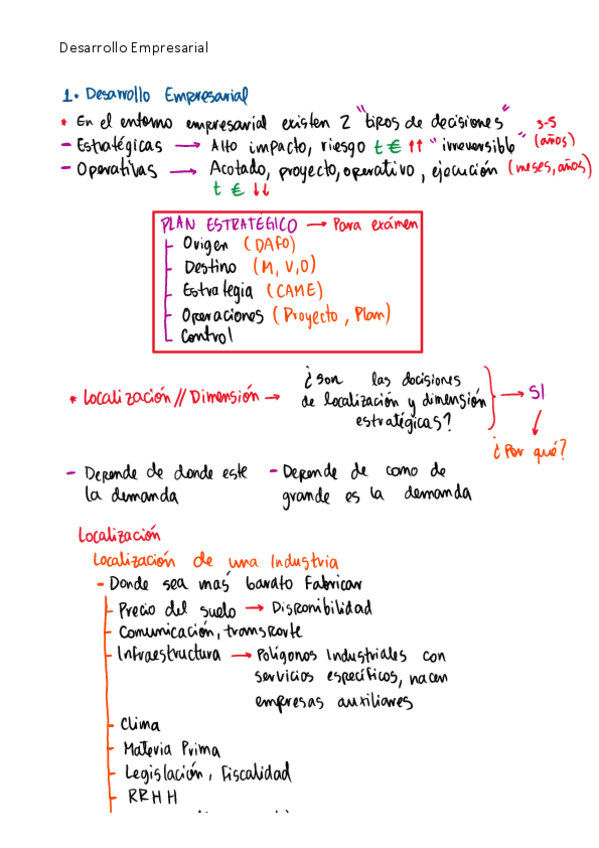 Desarrollo Empresarial
1. Desarrollo Empresarial
* En el entorno empresarial existen 2 "tipos de decisiones"
- Estratégicas → Alto impacto, riesgo t € ↑↑ "irreversible" 3-5 (años)
- Operativas → Acotado, proyecto, operativo, ejecución (meses, años)
t € ↓↓
PLAN ESTRATÉGICO → Para exámen
Origen (DAFO)
Destino (M, V, O)
Estrategia (CAME)
Operaciones (Proyecto, Plan)
Control
* Localización // Dimensión → ¿Son las decisiones de localización y dimensión estratégicas? → SI
¿Por qué?
- Depende de donde este la demanda
- Depende de como de grande es la demanda
Localización
Localización de una Industria
- Donde sea mas barato Fabricar
Precio del suelo → Disponibilidad
Comunicación, transporte
Infraestructura → Polígonos Industriales con
servicios específicos, nacen
empresas auxiliares
Clima
Materia Prima
Legislación, Fiscalidad
RRHH